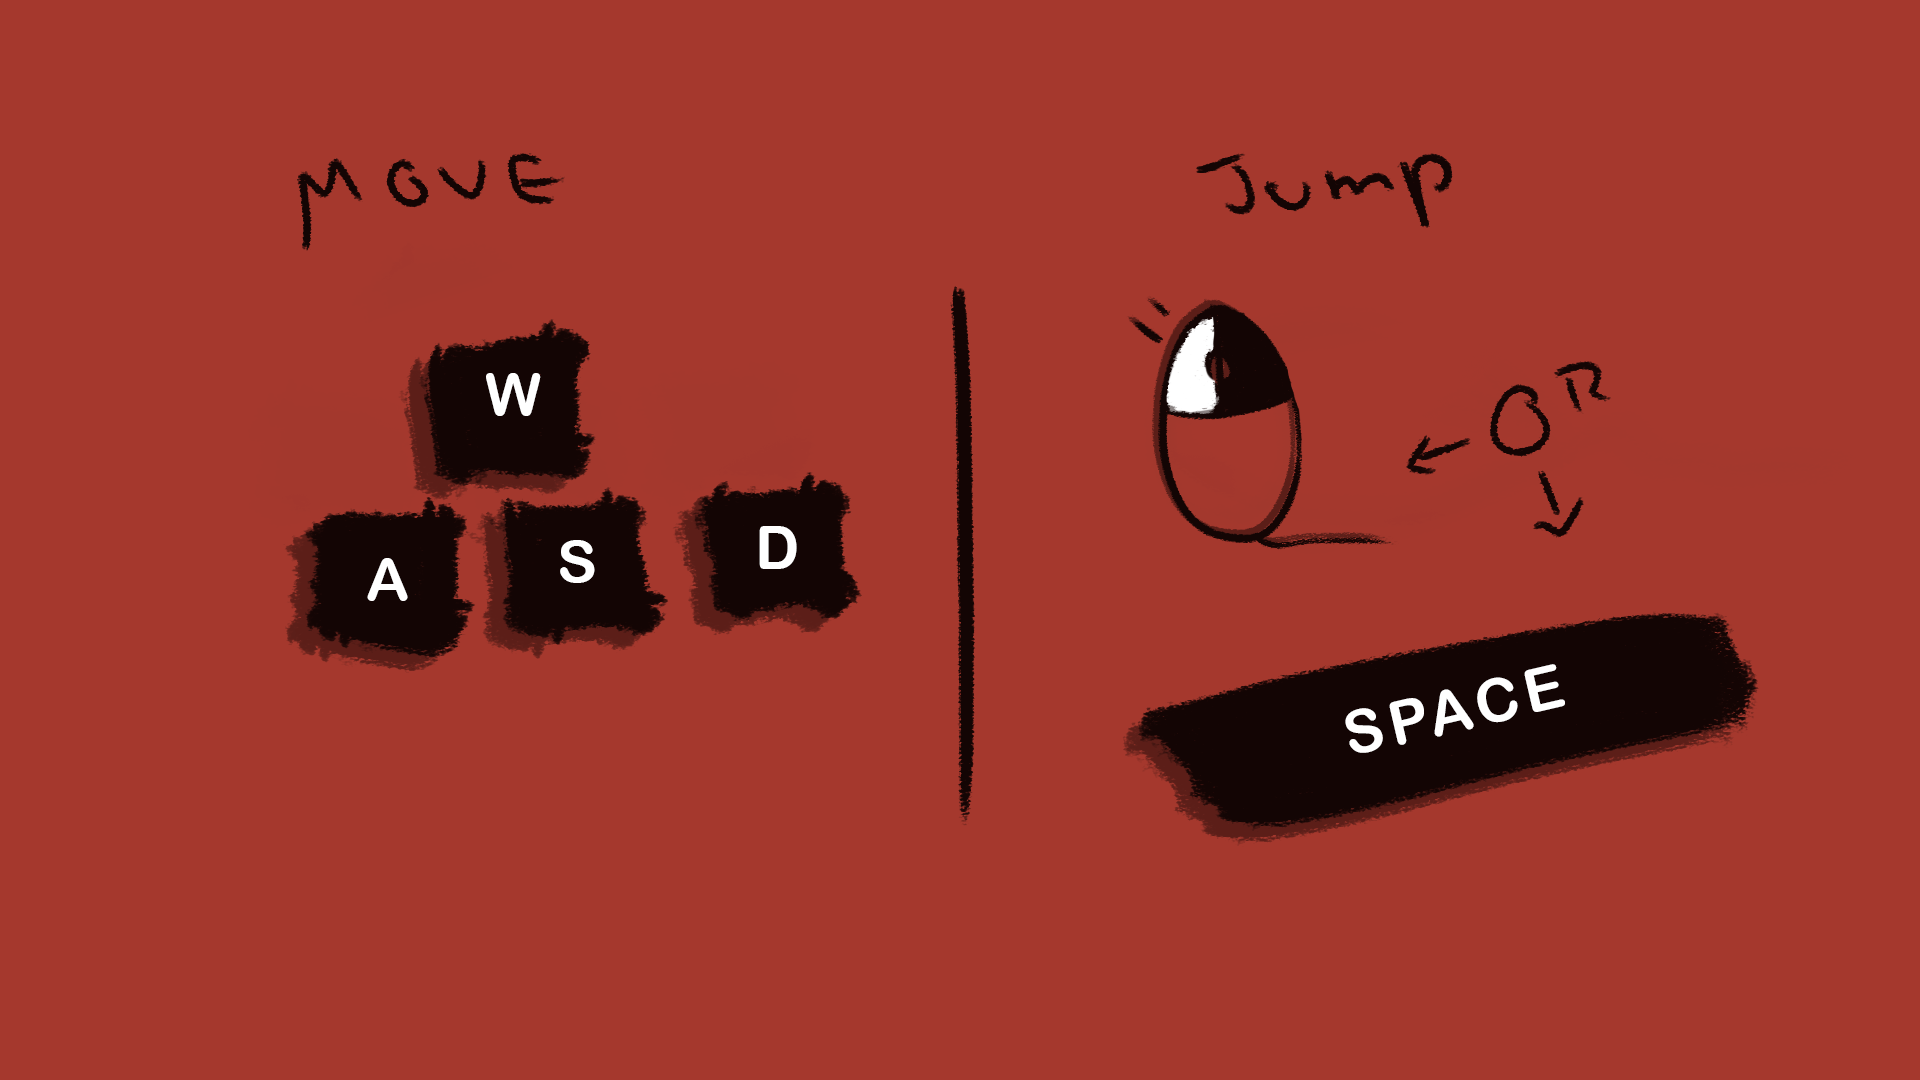 MOVE
W
A S D
Jump
OR
SPACE